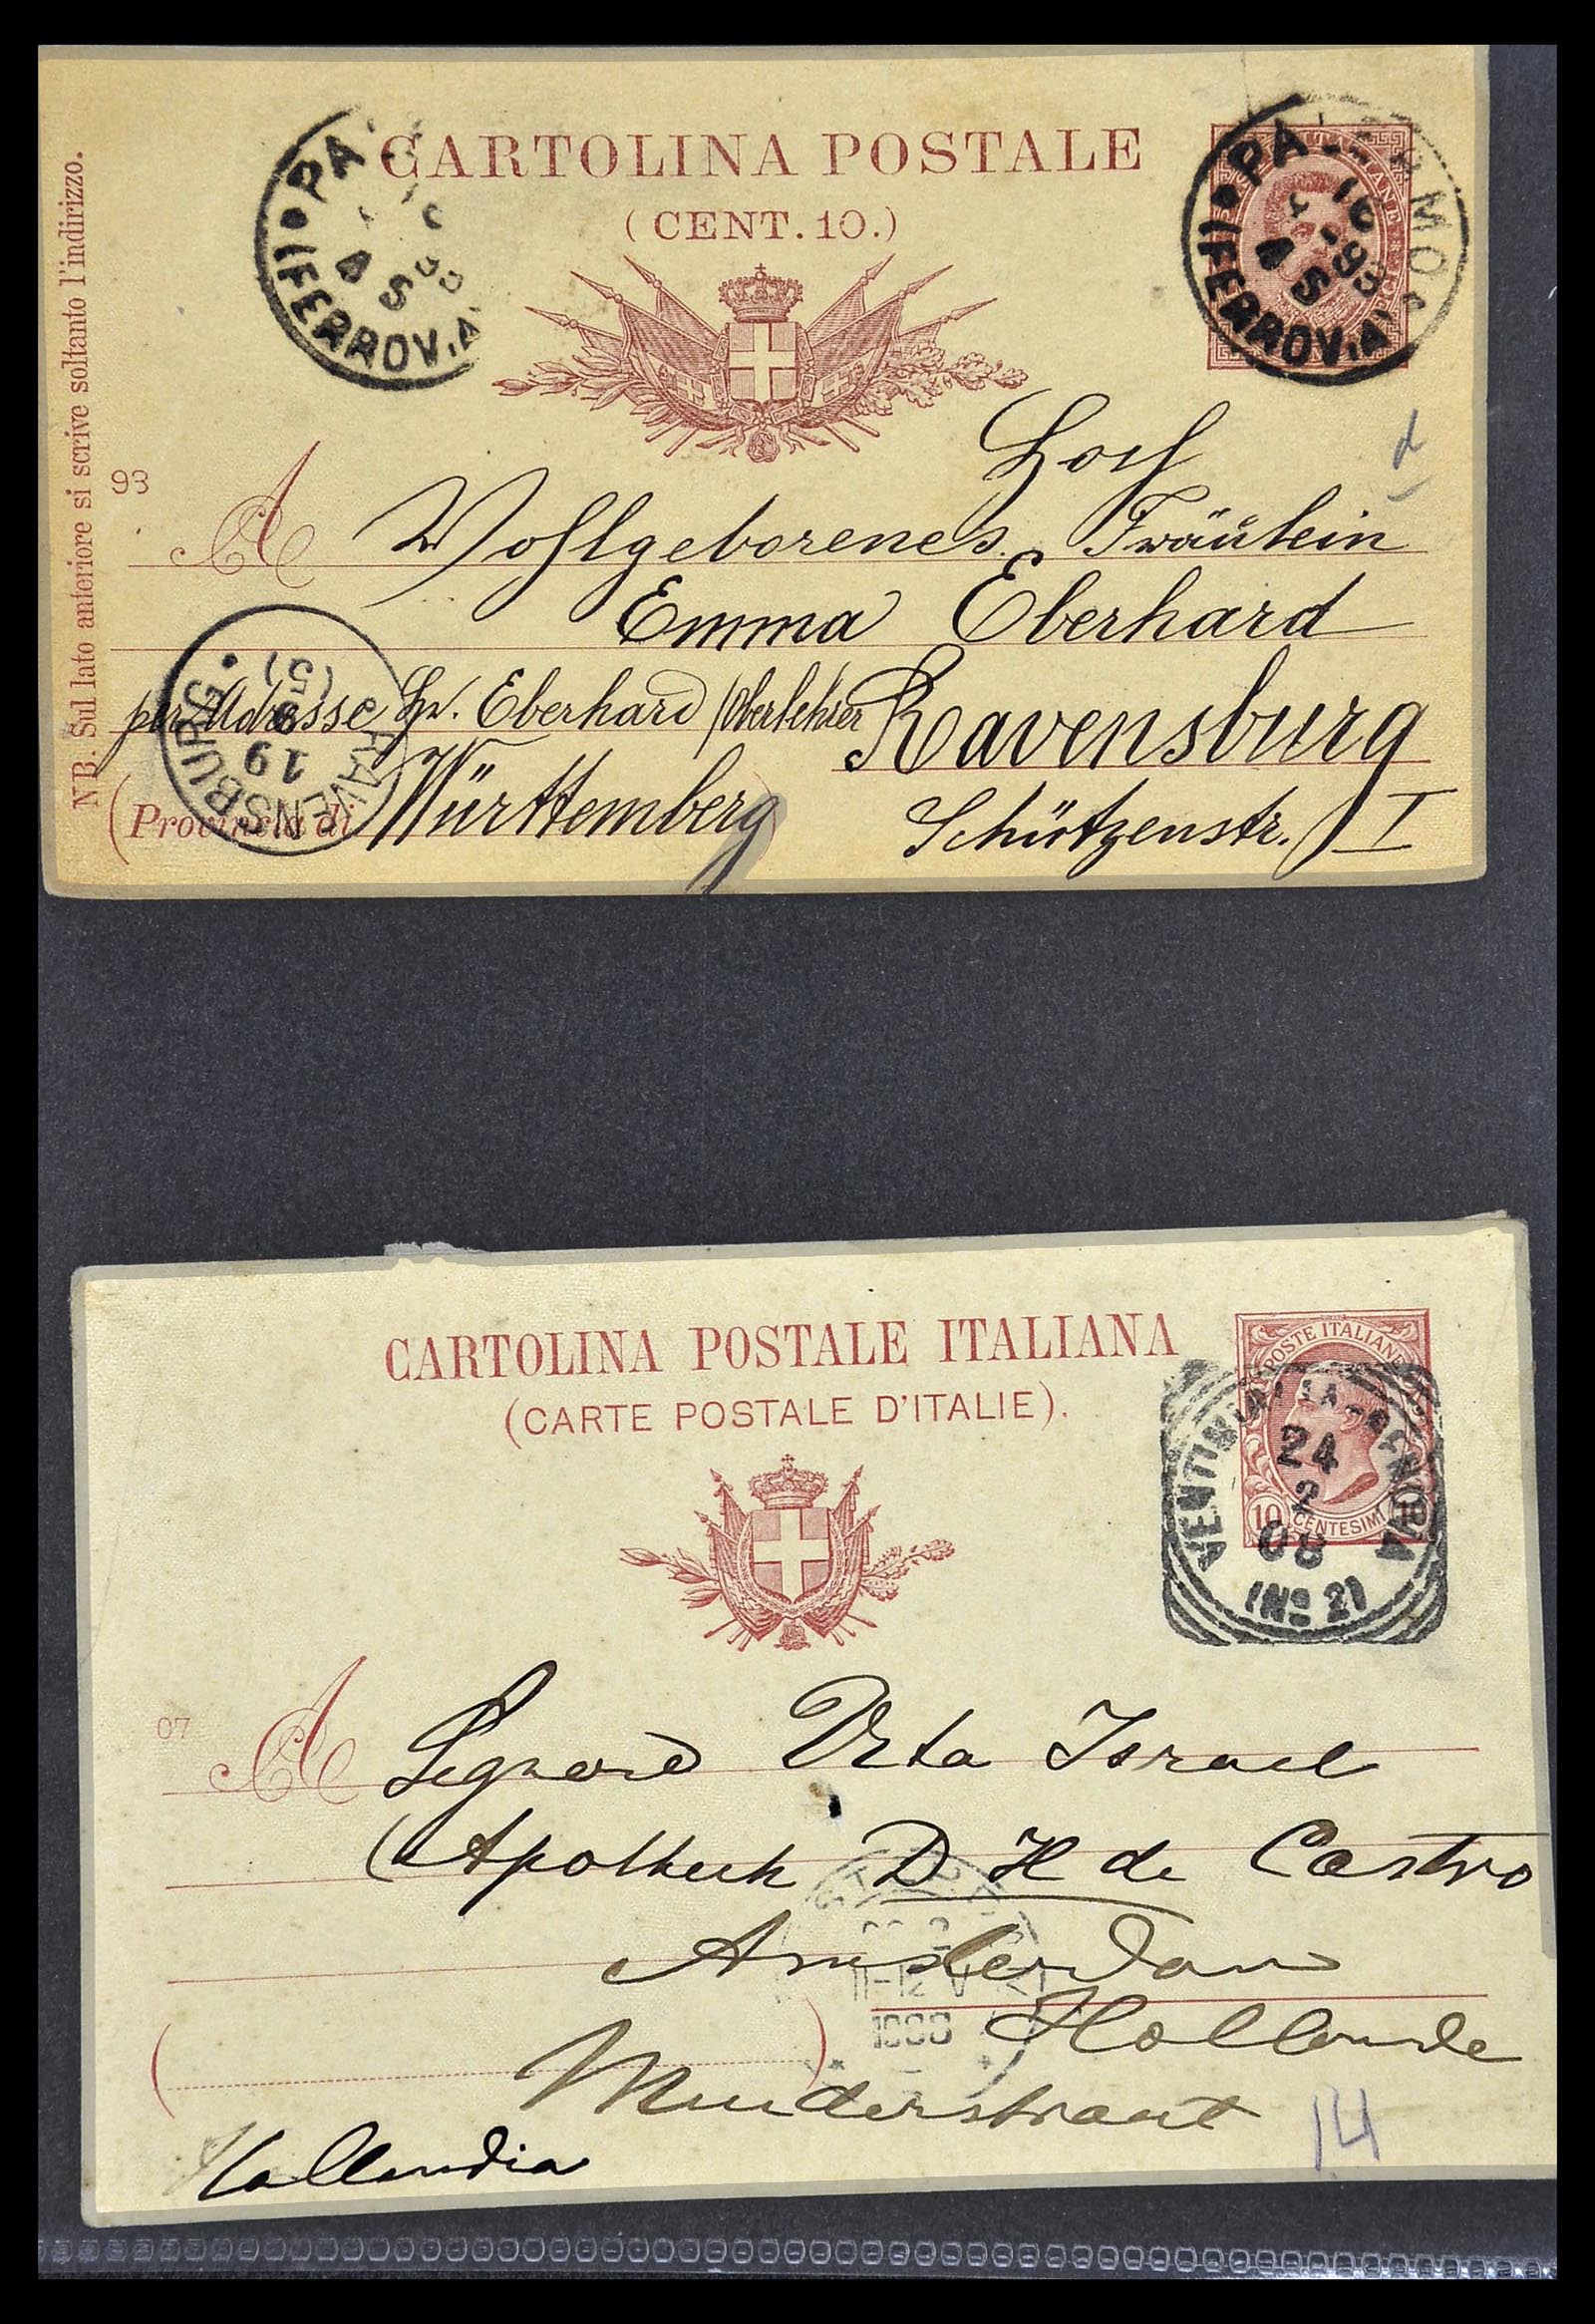 CARTOLINA POSTALE
(CENT. 10.)
NB. Sul lato anteriore si scrive soltanto l'indirizzo.
PA
4 S
(FERROVIA)
PALERMO
16
93
4 S
(FERROVIA)
93
A
Hoch
Wohlgeborenes Fräulein
Emma Eberhard
per Adresse Hr. Eberhard / Oberlehrer Ravensburg
(Provincia di Württemberg)
Schützenstr. I
RAVENSBURG
19
(5)
CARTOLINA POSTALE ITALIANA
(CARTE POSTALE D'ITALIE).
POSTE ITALIANE
10 CENTESIMI 10
VENTIMIGLIA-GENOVA
24
2
08
(No 2)
07
A
Israel
Apotheek D H de Castro
Amsterdam
Hollande
11-12 V
Muiderstraat
Hollandia
14